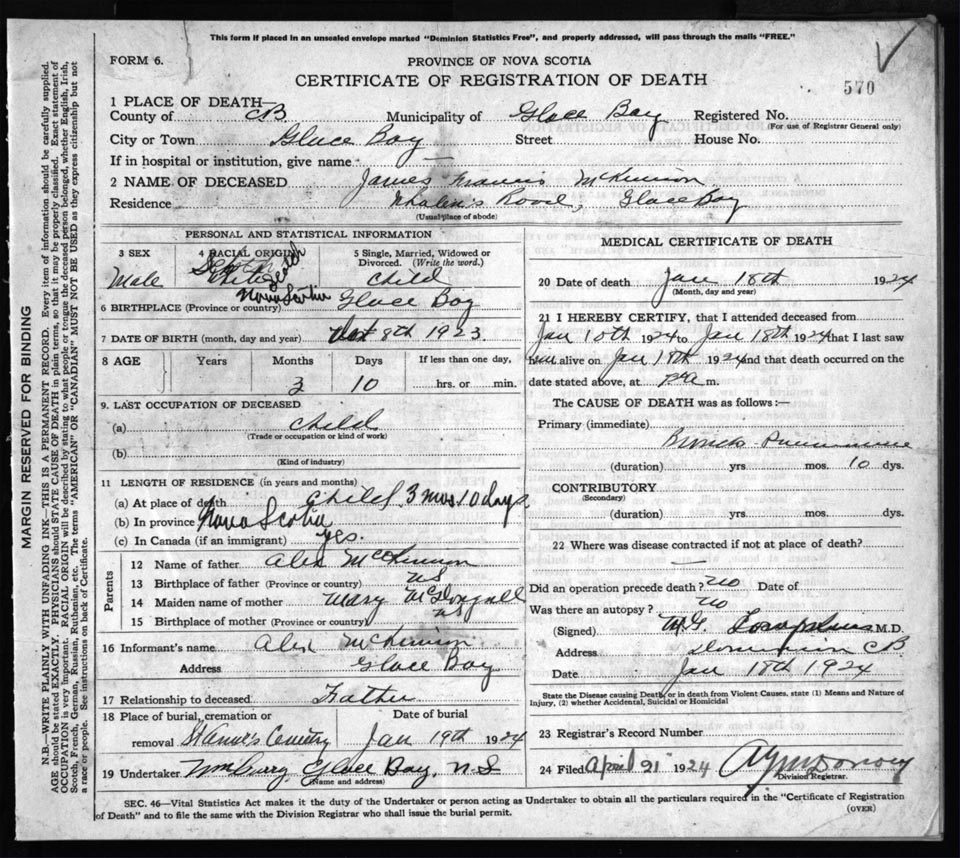 This form if placed in an unsealed envelope marked "Dominion Statistics Free", and properly addressed, will pass through the mails "FREE."
FORM 6.
PROVINCE OF NOVA SCOTIA
CERTIFICATE OF REGISTRATION OF DEATH
570
1 PLACE OF DEATH—
County of CB Municipality of Glace Bay Registered No.
(For use of Registrar General only)
City or Town Glace Bay Street House No.
If in hospital or institution, give name —
2 NAME OF DECEASED James Francis McKinnon
Residence Whalen's Road, Glace Bay
(Usual place of abode)
PERSONAL AND STATISTICAL INFORMATION
3 SEX 4 RACIAL ORIGIN 5 Single, Married, Widowed or Divorced. (Write the word.)
Male Scotch Child
6 BIRTHPLACE (Province or country) Nova Scotia Glace Bay
7 DATE OF BIRTH (month, day and year) Oct 8th 1923
8 AGE Years Months Days If less than one day,
3 10 hrs. or min.
9. LAST OCCUPATION OF DECEASED
(a) Child
(Trade or occupation or kind of work)
(b)
(Kind of industry)
11 LENGTH OF RESIDENCE (in years and months)
(a) At place of death Child 3 mos. 10 days
(b) In province Nova Scotia
(c) In Canada (if an immigrant) yes.
Parents
12 Name of father Alex McKinnon
13 Birthplace of father (Province or country) NS
14 Maiden name of mother Mary McDougall
15 Birthplace of mother (Province or country) NS
16 Informant's name Alex McKinnon
Address Glace Bay
17 Relationship to deceased Father
18 Place of burial, cremation or removal Date of burial
St Anne's Cemetry Jan 19th 1924
19 Undertaker Glace Bay, N.S
(Name and address)
MEDICAL CERTIFICATE OF DEATH
20 Date of death Jan 18th 1924
(Month, day and year)
21 I HEREBY CERTIFY, that I attended deceased from
Jan 10th 1924 to Jan 18th 1924 that I last saw
him alive on Jan 18th 1924 and that death occurred on
date stated above, at m.
The CAUSE OF DEATH was as follows:—
Primary (immediate)
Pneumonia
(duration) yrs. mos. 10 dys.
CONTRIBUTORY
(Secondary)
(duration) yrs. mos. dys.
22 Where was disease contracted if not at place of death?
—
Did an operation precede death? No Date of
Was there an autopsy? No
(Signed) M.D.
Address Dominion CB
Date Jan 18th 1924
State the Disease causing Death, or in death from Violent Causes, state (1) Means and Nature of
Injury, (2) whether Accidental, Suicidal or Homicidal
23 Registrar's Record Number
24 Filed April 21 1924
Division Registrar.
SEC. 46—Vital Statistics Act makes it the duty of the Undertaker or person acting as Undertaker to obtain all the particulars required in the "Certificate of Registration
of Death" and to file the same with the Division Registrar who shall issue the burial permit.
(OVER)
MARGIN RESERVED FOR BINDING
N.B.—WRITE PLAINLY WITH UNFADING INK—THIS IS A PERMANENT RECORD. Every item of information should be carefully supplied.
AGE should be stated EXACTLY. PHYSICIANS should STATE CAUSE OF DEATH in plain terms, so that it may be properly classified. Exact statement of
OCCUPATION is very important. RACIAL ORIGIN will be described by stating to what people or tongue the deceased person belonged, whether English, Irish,
Scotch, French, German, Russian, Ruthenian, etc. The terms "AMERICAN" or "CANADIAN" MUST NOT BE USED as they express citizenship but not
a race or people. See instructions on back of Certificate.